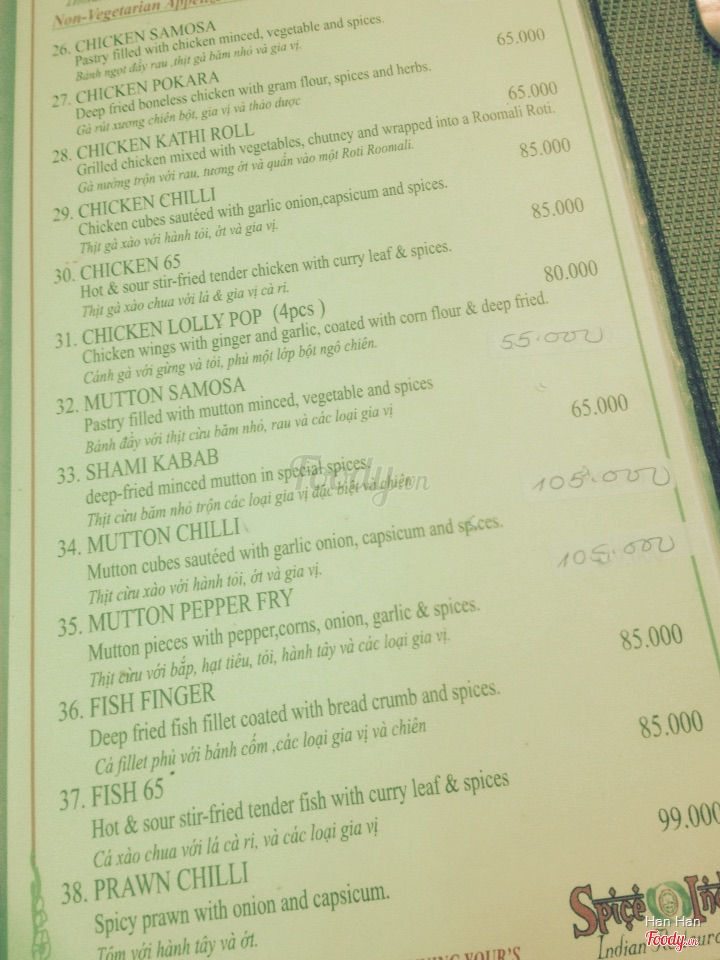 Non-Vegetarian
26. CHICKEN SAMOSA
Pastry filled with chicken minced, vegetable and spices.
Bánh ngọt đầy rau ,thịt gà băm nhỏ và gia vị.
65.000
27. CHICKEN POKARA
Deep fried boneless chicken with gram flour, spices and herbs.
Gà rút xương chiên bột, gia vị và thảo dược
65.000
28. CHICKEN KATHI ROLL
Grilled chicken mixed with vegetables, chutney and wrapped into a Roomali Roti.
Gà nướng trộn với rau, tương ớt và quấn vào một Roti Roomali.
85.000
29. CHICKEN CHILLI
Chicken cubes sautéed with garlic onion,capsicum and spices.
Thịt gà xào với hành tỏi, ớt và gia vị.
85.000
30. CHICKEN 65
Hot & sour stir-fried tender chicken with curry leaf & spices.
Thịt gà xào chua với lá & gia vị cà ri.
80.000
31. CHICKEN LOLLY POP (4pcs )
Chicken wings with ginger and garlic, coated with corn flour & deep fried.
Cánh gà với gừng và tỏi, phủ một lớp bột ngô chiên.
55.000
32. MUTTON SAMOSA
Pastry filled with mutton minced, vegetable and spices
Bánh đầy với thịt cừu băm nhỏ, rau và các loại gia vị
65.000
33. SHAMI KABAB
deep-fried minced mutton in special spices
Thịt cừu băm nhỏ trộn các loại gia vị đặc biệt và chiên
105.000
34. MUTTON CHILLI
Mutton cubes sautéed with garlic onion, capsicum and spices.
Thịt cừu xào với hành tỏi, ớt và gia vị.
105.000
35. MUTTON PEPPER FRY
Mutton pieces with pepper,corns, onion, garlic & spices.
Thịt cừu với bắp, hạt tiêu, tỏi, hành tây và các loại gia vị.
85.000
36. FISH FINGER
Deep fried fish fillet coated with bread crumb and spices.
Cá fillet phủ với bánh cốm ,các loại gia vị và chiên
85.000
37. FISH 65
Hot & sour stir-fried tender fish with curry leaf & spices
Cá xào chua với lá cà ri, và các loại gia vị
99.000
38. PRAWN CHILLI
Spicy prawn with onion and capsicum.
Tôm với hành tây và ớt.
Spice
Indian
YOUR'S
Foody.vn
Han Han
Foody.vn